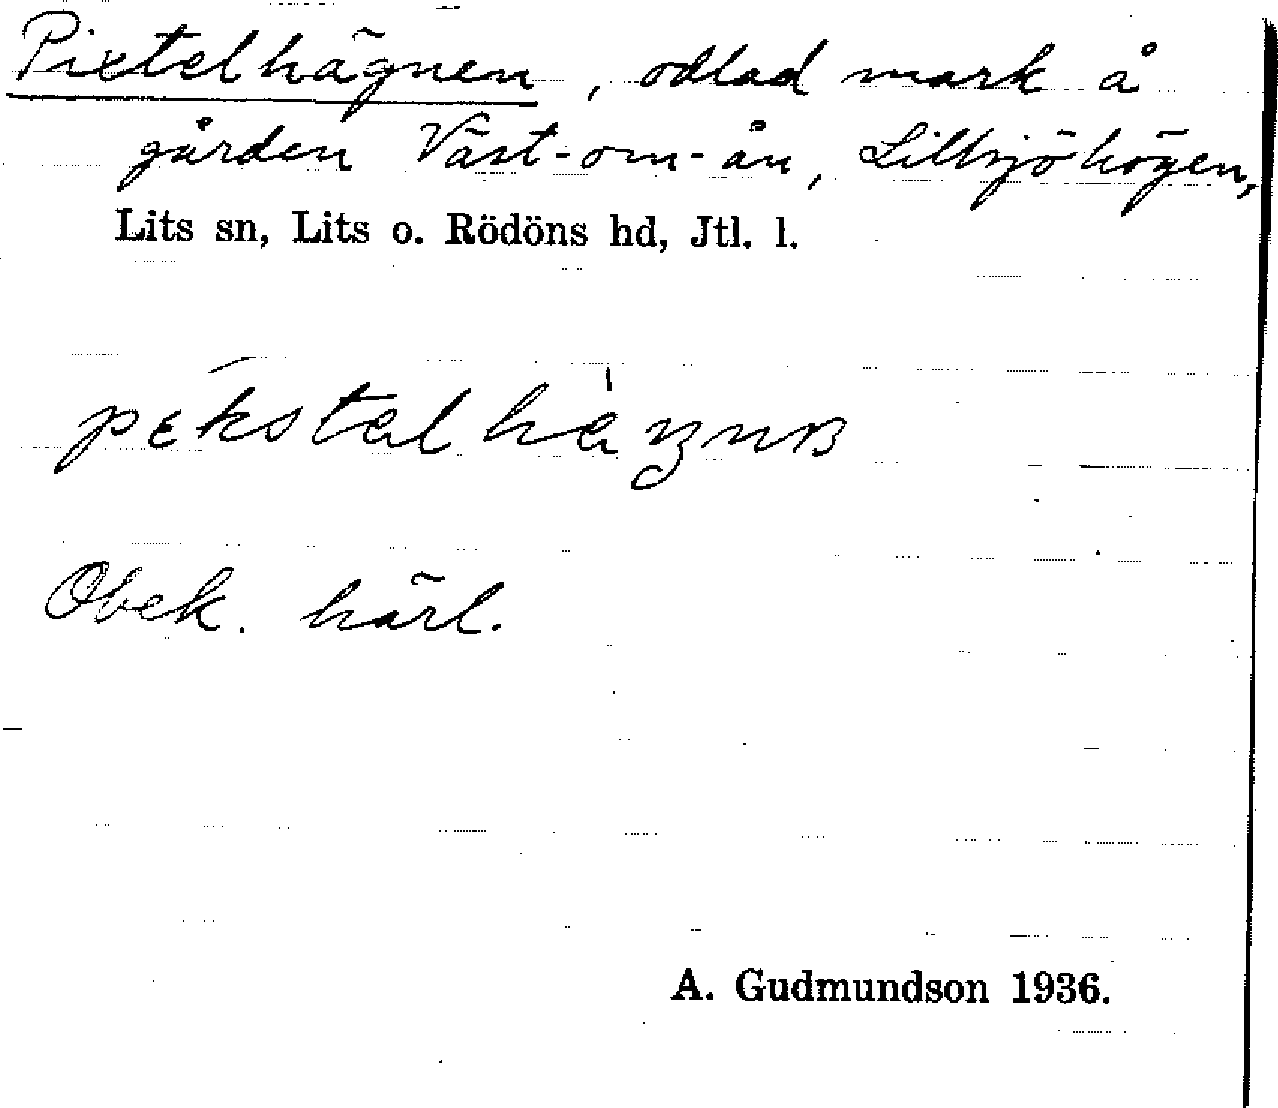 Pixtelhägnen, odlad mark å
gården Väst-om-ån, Lillsjöhögen,
Lits sn, Lits o. Rödöns hd, Jtl. l.
Obek. härl.
A. Gudmundson 1936.